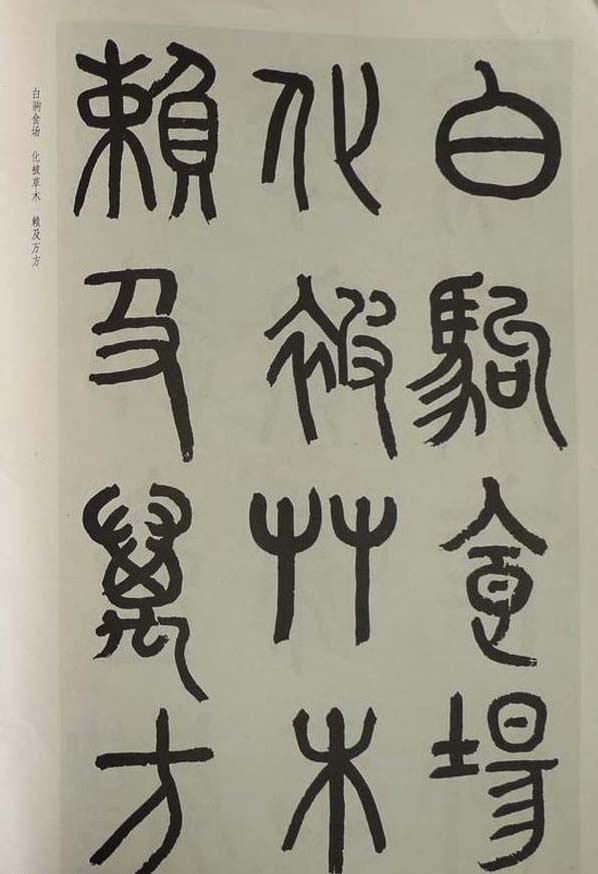 白駒食場
化被艸木
賴及萬方
白驹食场 化被草木 赖及万方